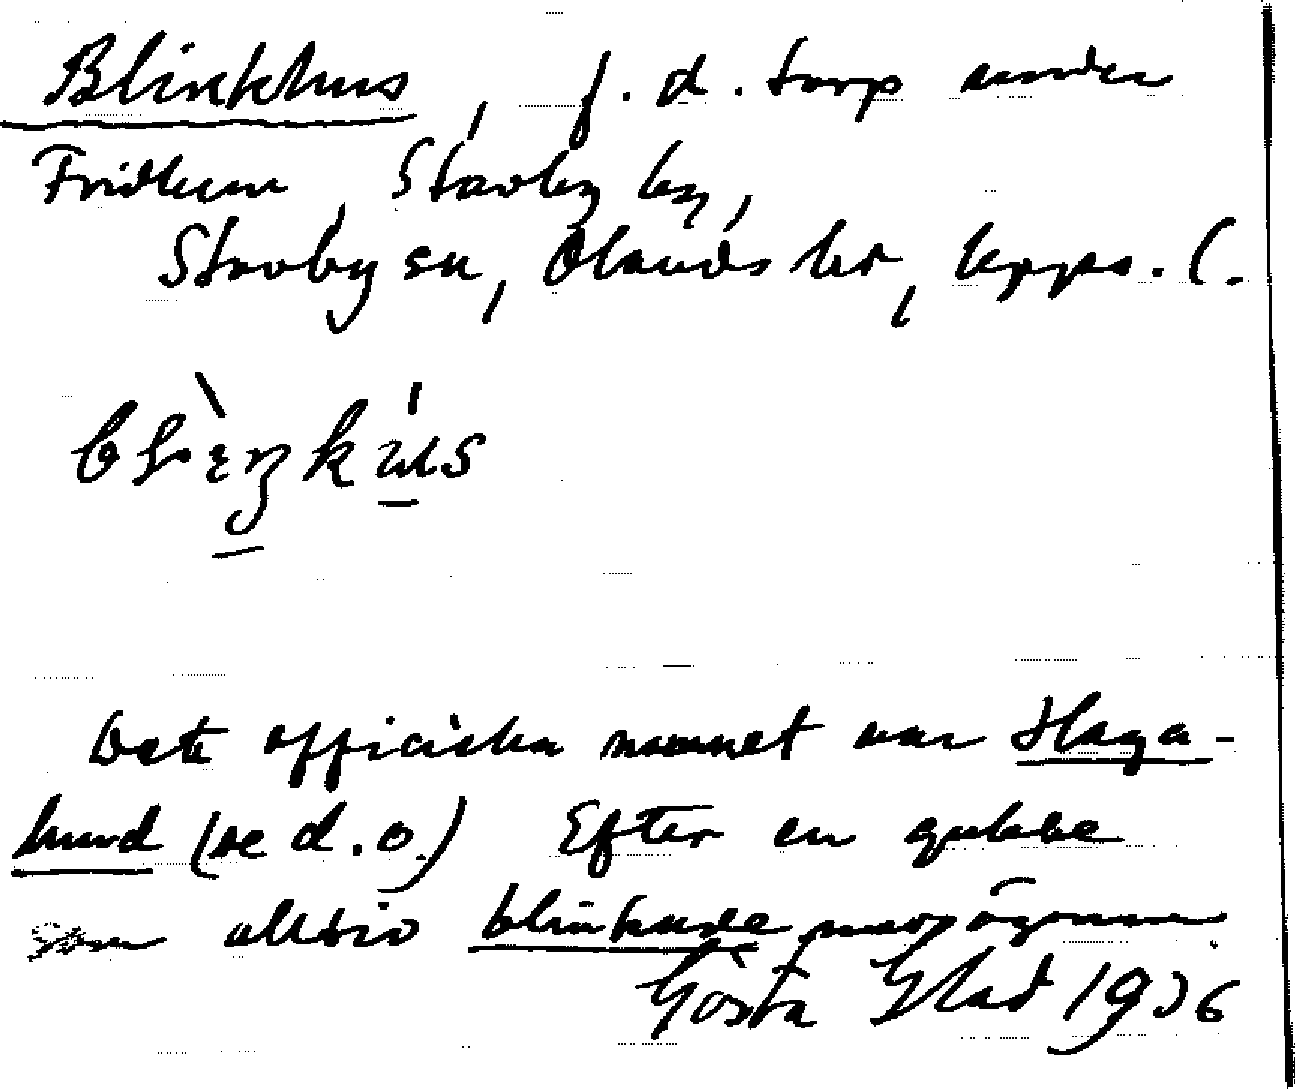 Blinkhus, f. d. torp under
Fridhem, Stavby by,
Stavby sn, Olands hd, Upps. l.
blìŋkú̱s
Det officiella namnet var Haga-
lund (se d. o.) Efter en gubbe
som alltid blinkade med ögonen.
Gösta Glad 1936